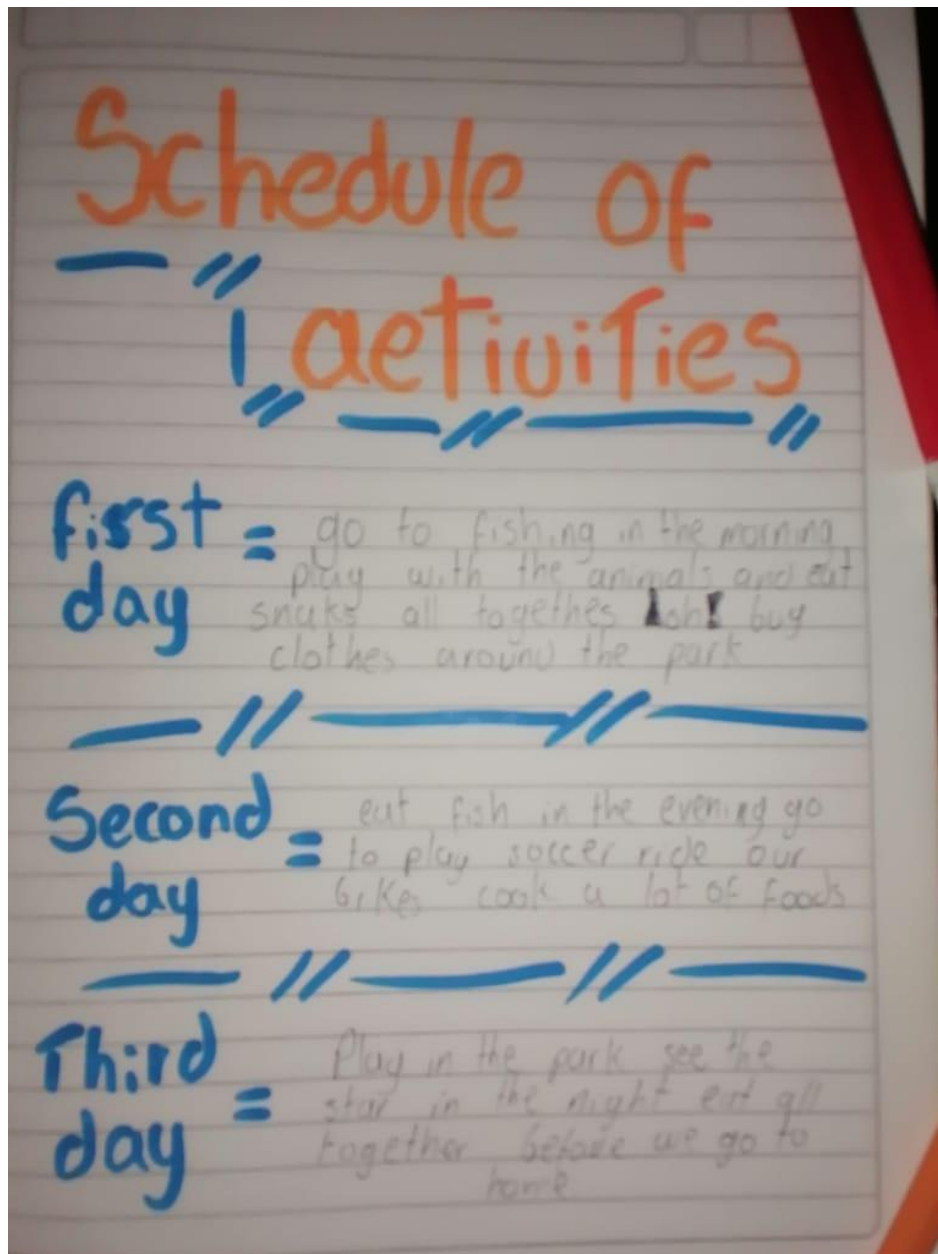 Schedule of
activities
first day = go to fishing in the morning
play with the animals and eat
snaks all togethes buy
clothes around the park
Second day = eat fish in the evening go
to play soccer ride our
bikes cook a lot of foods
Third day = Play in the park see the
star in the night eat all
together before we go to
home